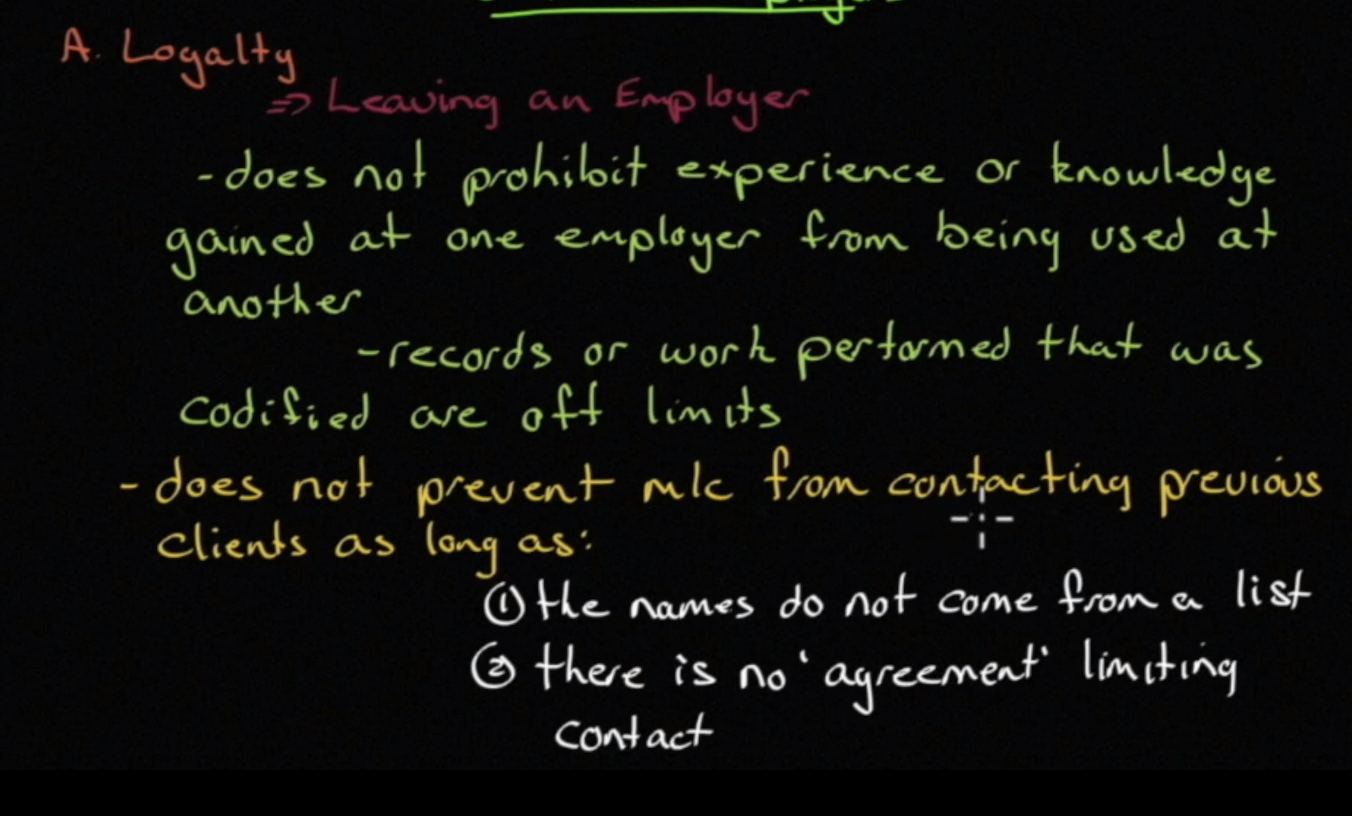 A. Loyalty
=> Leaving an Employer
- does not prohibit experience or knowledge
gained at one employer from being used at
another
- records or work performed that was
codified are off limits
- does not prevent m/c from contacting previous
clients as long as:
① the names do not come from a list
② there is no 'agreement' limiting
contact